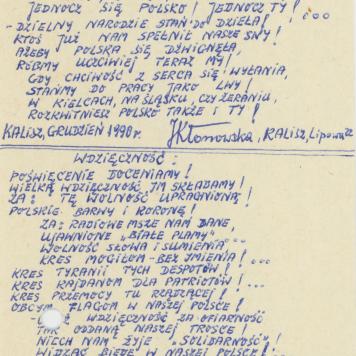 JEDNOCZ SIĘ POLSKO! JEDNOCZ TY!
- DZIELNY NARODZIE STAŃ DO DZIEŁA! ...
KTOŚ JUŻ NAM SPEŁNIŁ NASZE SNY!
AŻEBY POLSKA SIĘ DŹWIGNĘŁA,
RÓBMY UCZCIWIEJ TERAZ MY!
GDY CHCIWOŚĆ Z SERCA SIĘ WYŁANIA,
STAŃMY DO PRACY JAKO LWY!
W KIELCACH, NA ŚLĄSKU, CZY ŻERANIU,
ROZKWITNIESZ POLSKO TAKŻE I TY!
KALISZ, GRUDZIEŃ 1990 r. JKłonowska, KALISZ, Lipowa 22
WDZIĘCZNOŚĆ:
POŚWIĘCENIE DOCENIAMY!
WIELKĄ WDZIĘCZNOŚĆ IM SKŁADAMY!
ZA: TĘ WOLNOŚĆ UPRAGNIONĄ!
POLSKIE BARWY I KORONĘ!
ZA: RADIOWE MSZE NAM DANE,
UJAWNIONE „BIAŁE PLAMY"
WOLNOŚĆ SŁOWA I SUMIENIA...
KRES MOGIŁOM - BEZ IMIENIA!...
KRES TYRANII TYCH DESPOTÓW!
KRES KAJDANOM DLA PATRIOTÓW!...
KRES PRZEMOCY TU RZĄDZĄCEJ!
OBCYM FLAGOM W NASZEJ POLSCE!
WDZIĘCZNOŚĆ ZA OFIARNOŚĆ
TAK ODDANĄ NASZEJ TROSCE!
NIECH NAM ŻYJE „SOLIDARNOŚĆ"!
WIDZĄC BIEDĘ W NASZEJ POLSCE!